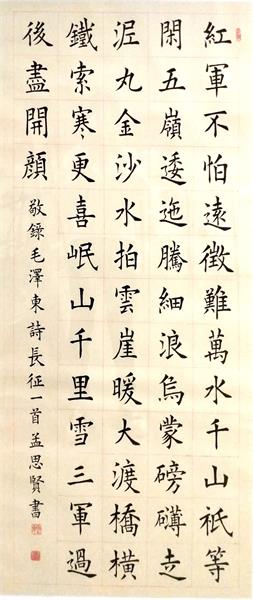 紅軍不怕遠徵難萬水千山祇等
閑五嶺逶迤騰細浪烏蒙磅礴走
泥丸金沙水拍雲崖暖大渡橋橫
鐵索寒更喜岷山千里雪三軍過
後盡開顏
敬錄毛澤東詩長征一首孟思賢書